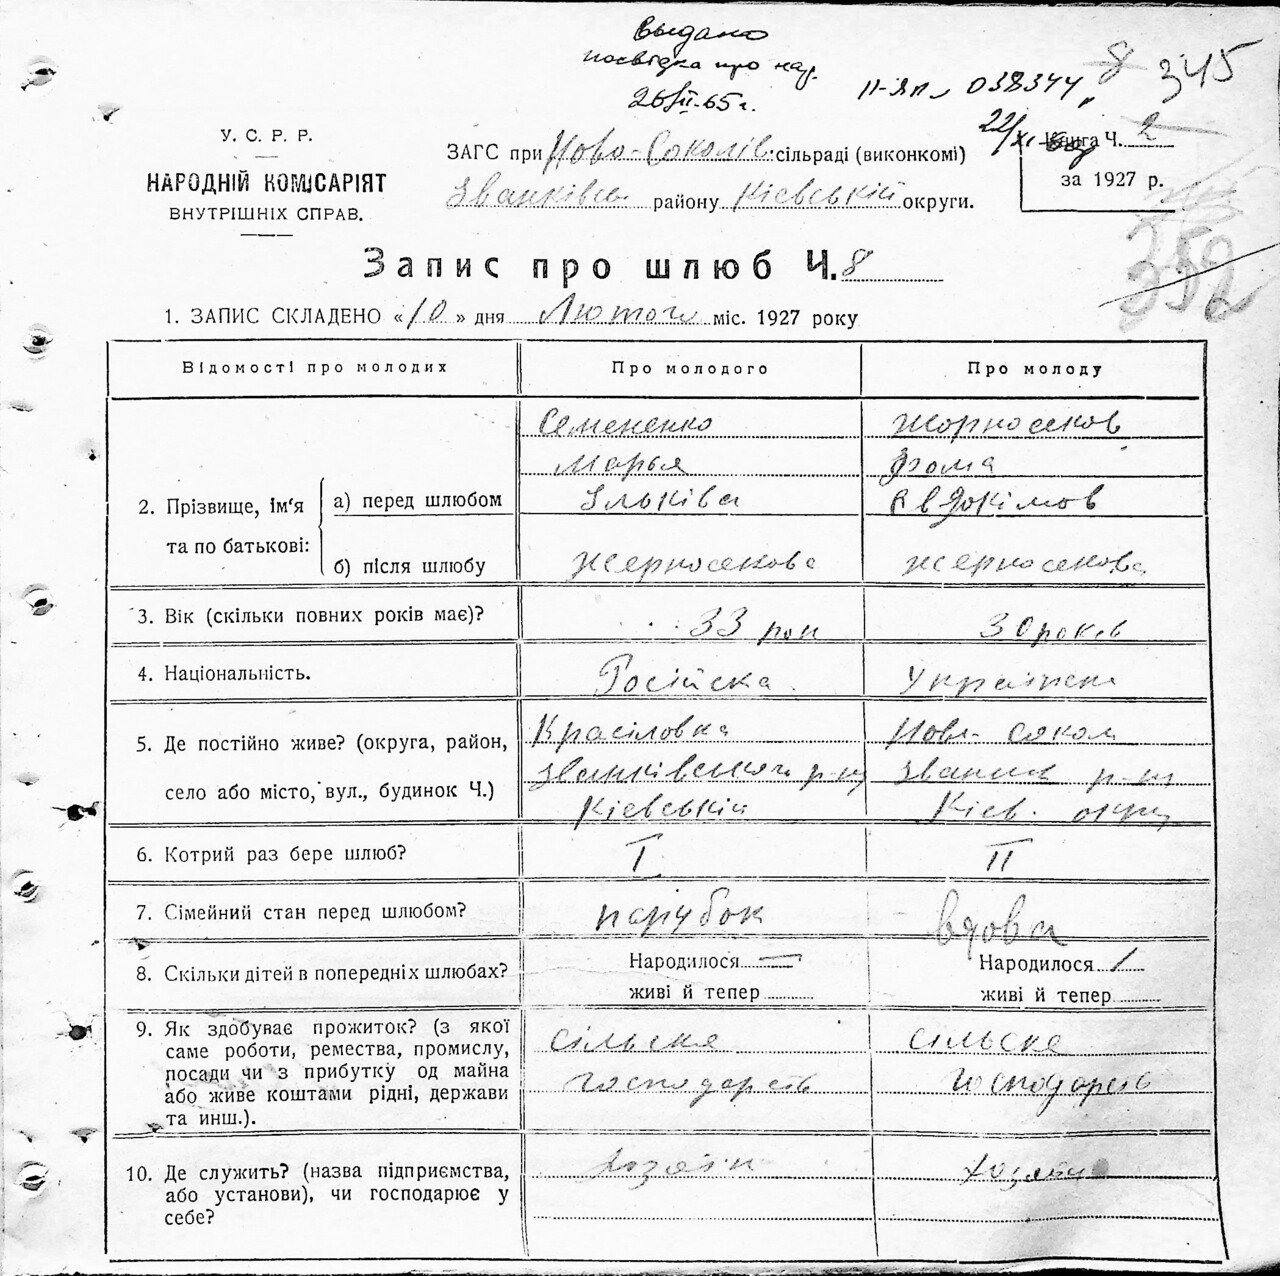 Выдано
посвідка про
26/ІІ-65 г.
ІІ-ЯП 038344
8 345
22/ХІ
У. С. Р. Р.
НАРОДНІЙ КОМІСАРІЯТ
ВНУТРІШНІХ СПРАВ.
ЗАГС при Ново-Соколів. сільраді (виконкомі)
Званківськ району Кіевській округи.
Книга Ч. 2
за 1927 р.
352
Запис про шлюб Ч. 8
1. ЗАПИС СКЛАДЕНО «10» дня Лютого міс. 1927 року
Відомості про молодих
Про молодого
Про молоду
2. Прізвище, ім'я
та по батькові:
а) перед шлюбом
б) після шлюбу
Семененко
Марья
Ільківа
Жерносекова
Жорносеков
Фома
Евдокімов
Жерносекова
3. Вік (скільки повних років має)?
33 рок
30 років
4. Національність.
Російска
Українська
5. Де постійно живе? (округа, район,
село або місто, вул., будинок Ч.)
Красіловка
Званківського р-ну
Кіевській
Ново-Сокол
Званків р-ну
Кіев. окру
6. Котрий раз бере шлюб?
І
ІІ
7. Сімейний стан перед шлюбом?
парубок
вдова
8. Скільки дітей в попередніх шлюбах?
Народилося —
живі й тепер
Народилося 1
живі й тепер
9. Як здобуває прожиток? (з якої
саме роботи, ремества, промислу,
посади чи з прибутку од майна
або живе коштами рідні, держави
та инш.).
сільске
господарств
сільске
господарств
10. Де служить? (назва підприємства,
або установи), чи господарює у
себе?
хозяін
хозяін